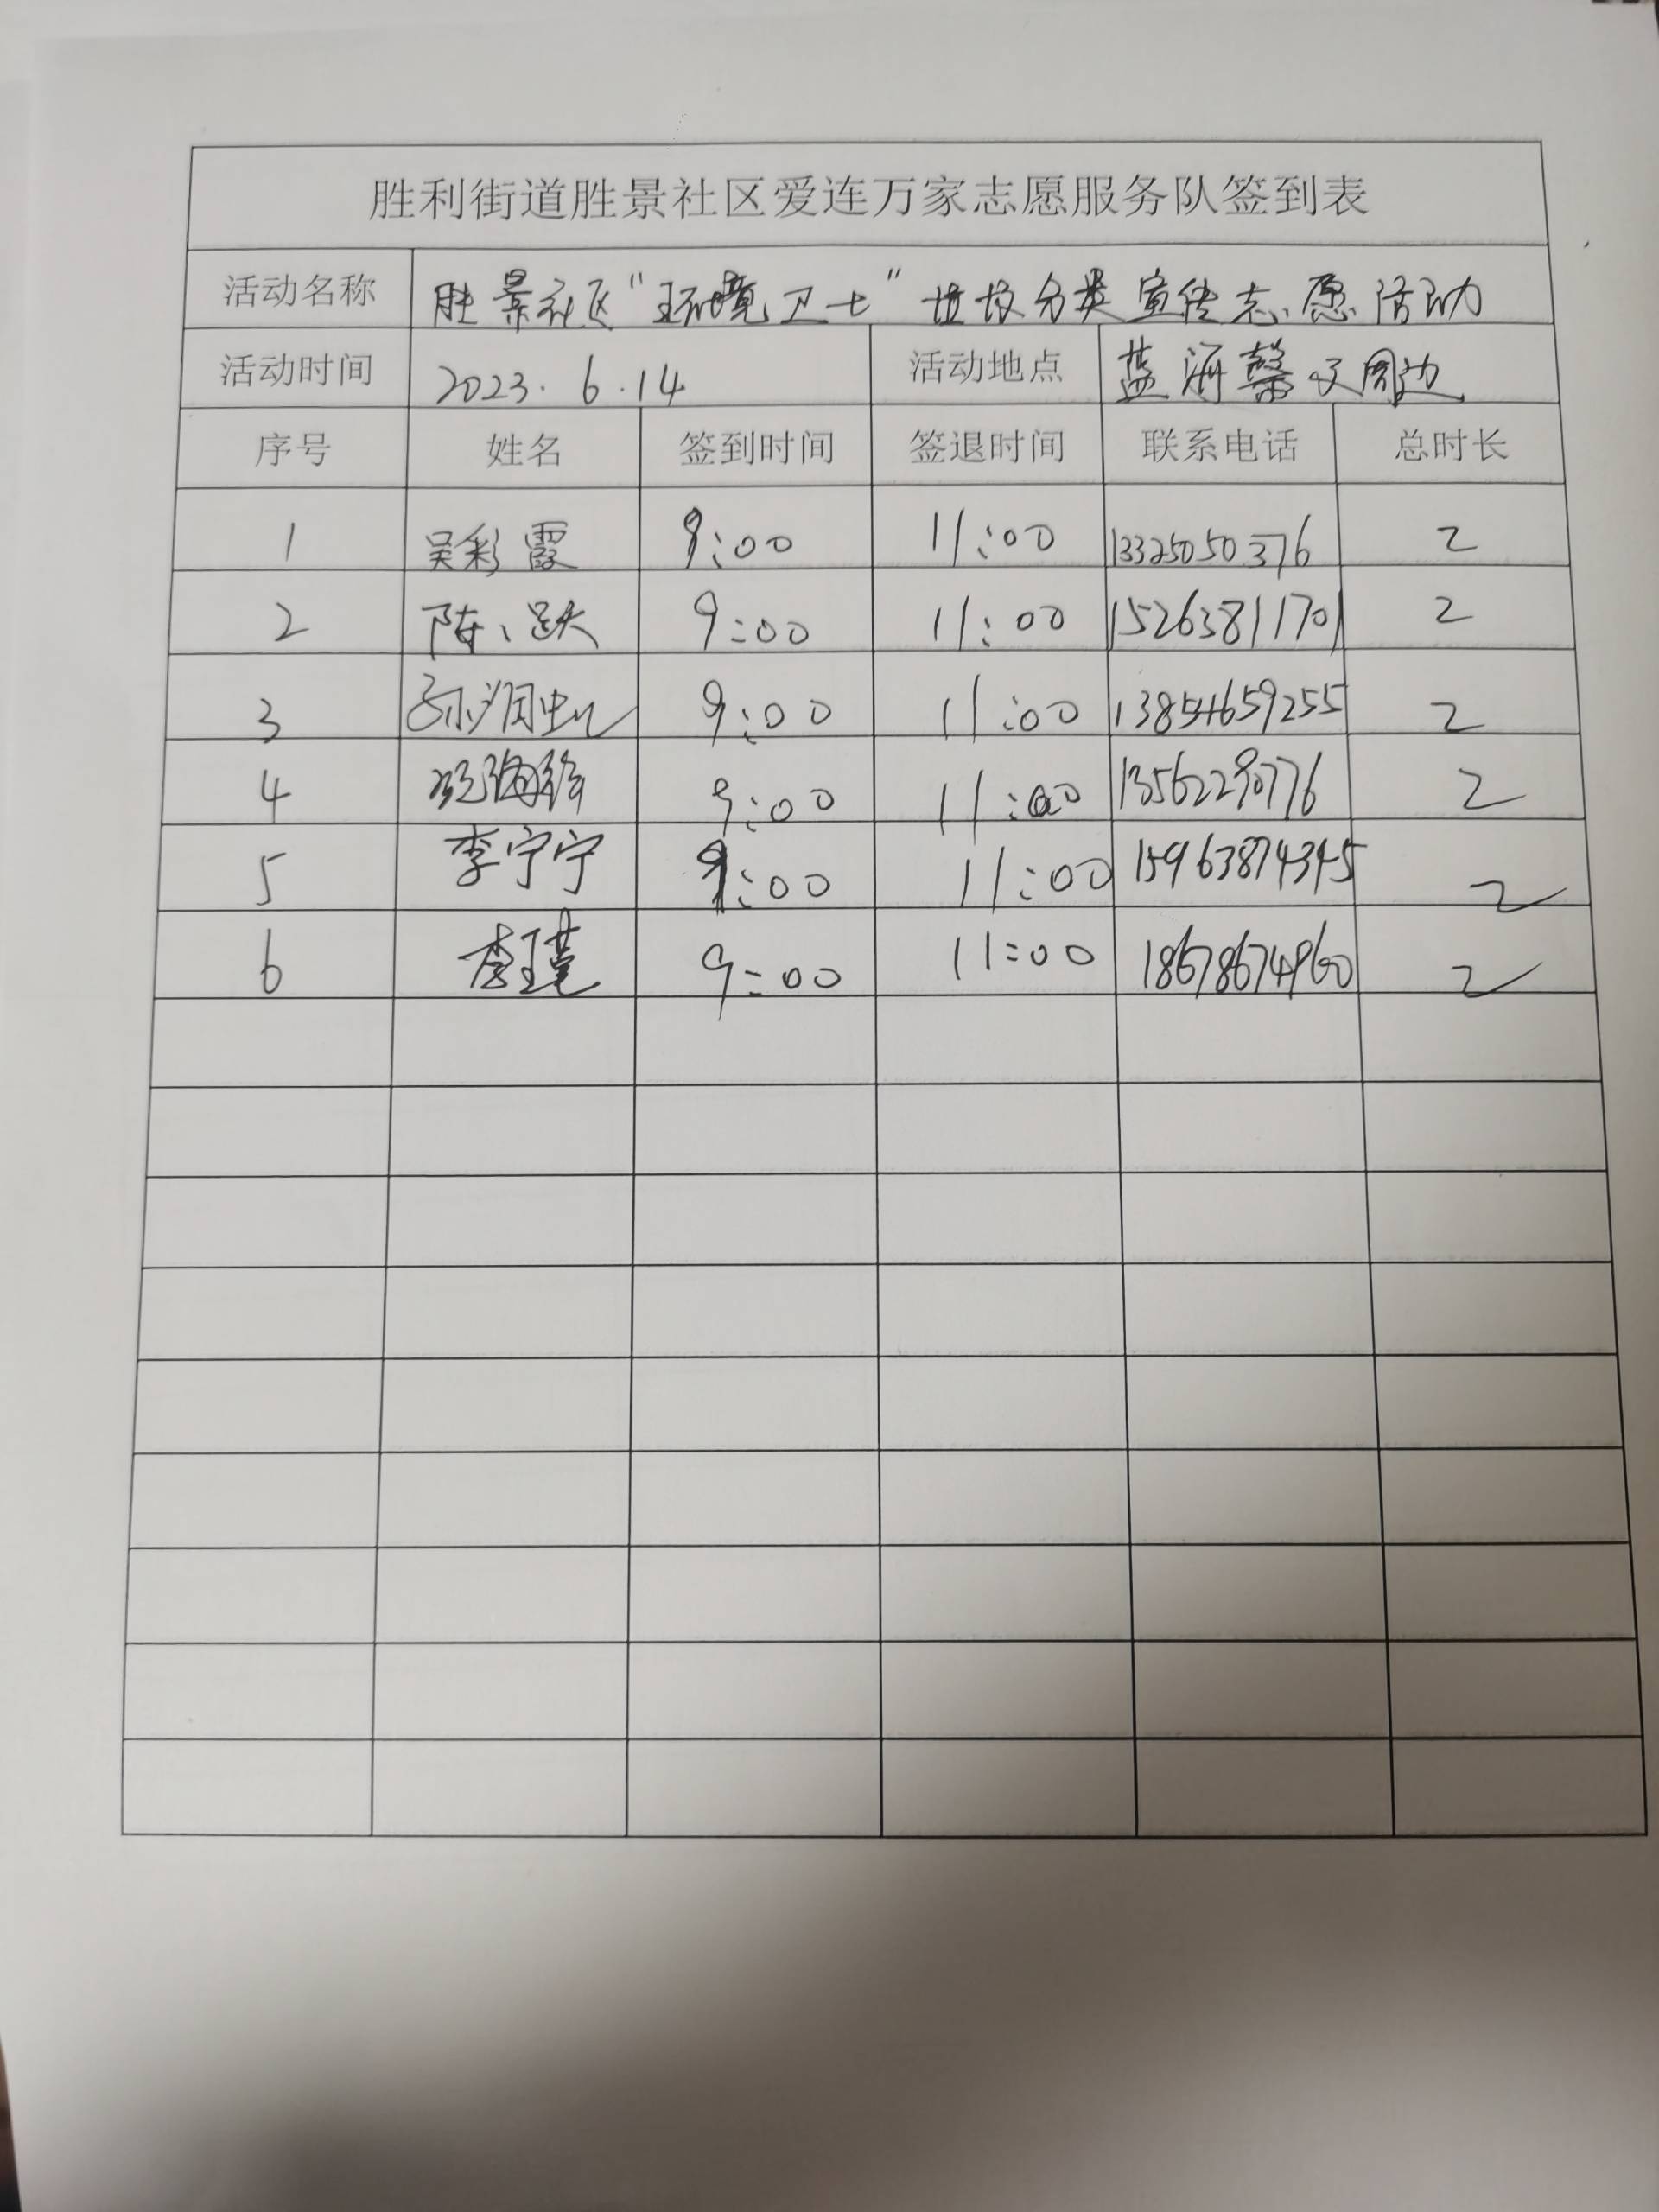 胜利街道胜景社区爱连万家志愿服务队签到表
活动名称 胜景社区“环境卫士”垃圾分类宣传志愿活动
活动时间 2023.6.14 活动地点 蓝海馨及周边
序号 姓名 签到时间 签退时间 联系电话 总时长
1 吴彩霞 9:00 11:00 13325050376 2
2 陈跃 9:00 11:00 15263811701 2
3 9:00 11:00 13854659255 2
4 9:00 11:00 13562290776 2
5 李宁宁 9:00 11:00 15963874345 2
6 李瑾 9:00 11:00 18678674960 2